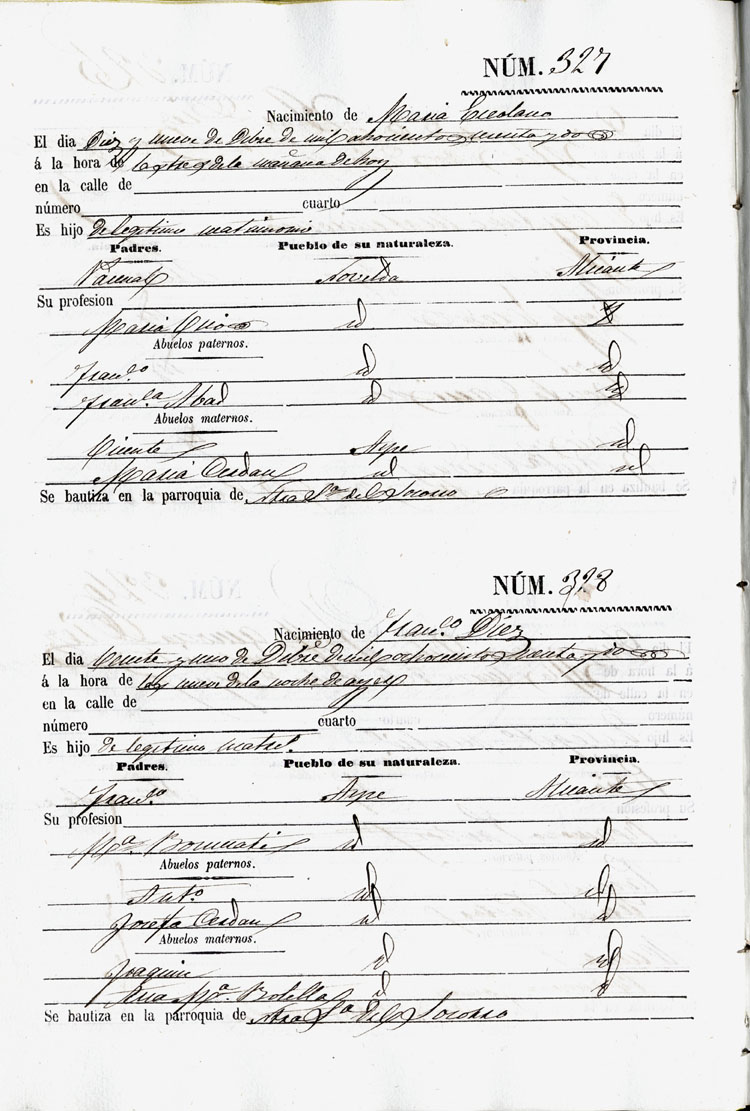 NÚM. 327
Nacimiento de Maria Escolano
El dia Diez y nueve de Dibre de mil ochocientos y dos
á la hora de las tres de la mañana de hoy
en la calle de
número cuarto
Es hijo de legitimo matrimonio
Padres. Pueblo de su naturaleza. Provincia.
Pascual Novelda Alicante
Su profesion
Maria id id
Abuelos paternos.
Franco. id id
Franca. Abad id id
Abuelos maternos.
Vicente Aspe id
Maria Cerdan id id
Se bautiza en la parroquia de Ntra Sa. del Socorro
NÚM. 328
Nacimiento de Franco. Diez
El dia Veinte y uno de Dibre de mil ochocientos y dos
á la hora de las nueve de la noche de ayer
en la calle de
número cuarto
Es hijo de legitimo matrl.
Padres. Pueblo de su naturaleza. Provincia.
Franco. Aspe Alicante
Su profesion
Ma. id id
Abuelos paternos.
Anto. id id
Josefa Cerdan id id
Abuelos maternos.
Joaquin id id
Ana Ma. Botella id id
Se bautiza en la parroquia de Ntra Sa del Socorro